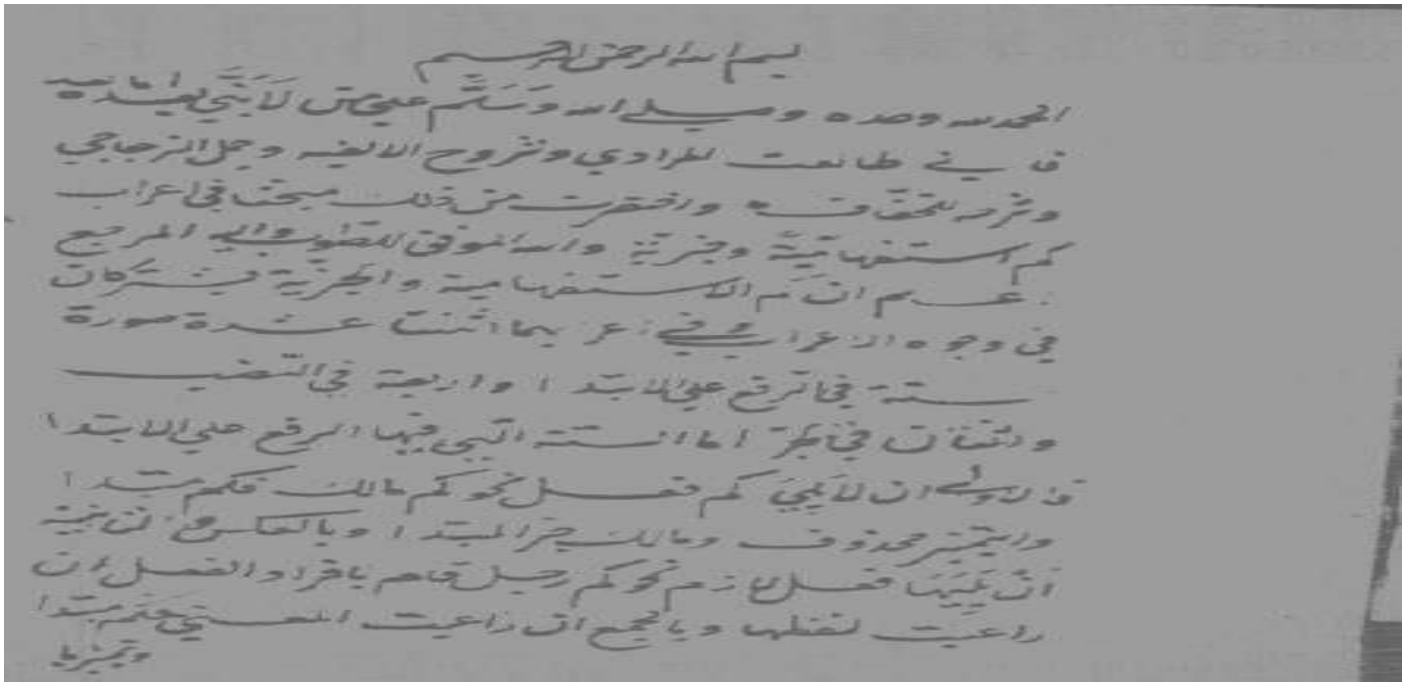 بسم الله الرحمن الرحيم
الحمد لله وحده وصلى الله وسلم على من لا نبي بعده اما بعد
فاني طالعت المرادي وشروح الالفيه وجمل الزجاجي
وشرحه للخفاف واختصرت من ذلك مبحثا في اعراب
كم استفهامية وخبرية والله الموفق للصواب واليه المرجع
اعلم ان كم الاستفهامية والخبرية يشتركان
في وجوه الاعراب وفي اعرابهما اثنتا عشرة صورة
ستة في الرفع على الابتدا واربعة في النصب
واثنتان في الجر اما الستة التي فيها الرفع على الابتدا
فالاولى ان لا يلي كم فعل نحو كم مالك فكم مبتدا
والتمييز محذوف ومالك خبر المبتدا وبالعكس الثانية
ان يليها فعل لازم نحو كم رجل قام بافراد الفعل ان
راعيت لفظها وبالجمع ان راعيت المعنى فكم مبتدا
وتمييزها